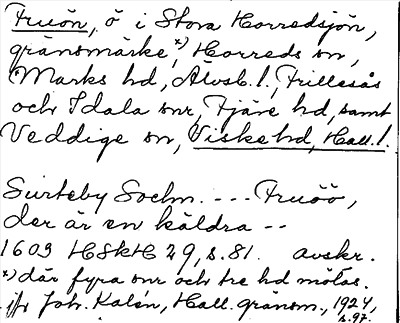 Fruön, ö i Stora Horredsjön,
gränsmärke,x) Horreds sn,
Marks hd, Älvsb. l., Frillesås
och Idala snr, Fjäre hd, samt
Veddige sn, Viske hd, Hall. l.
Surteby Sochn. --- Fruöö,
der är en källdra --
1603 HSkH 29, s. 81. avskr.
x) där fyra snr och tre hd mötas.
jfr Joh. Kalén, Hall. gränsm., 1924,
s. 97.